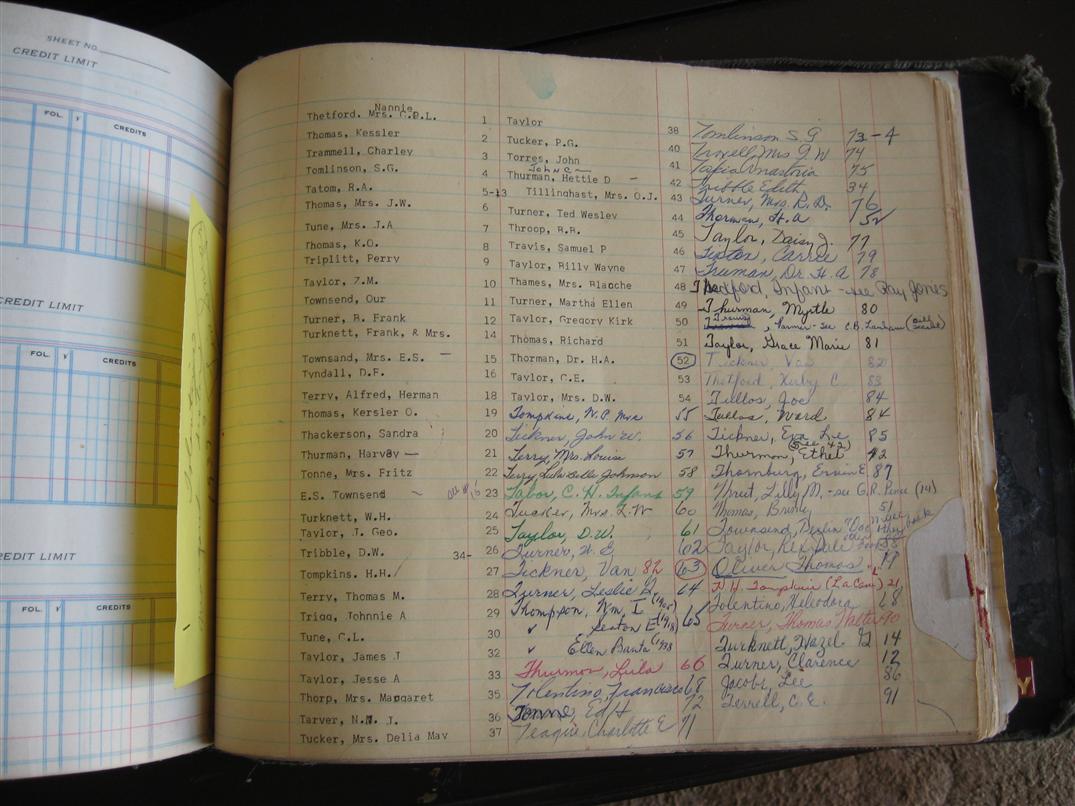 SHEET NO.
CREDIT LIMIT
FOL.
CREDITS
CREDIT LIMIT
FOL.
CREDITS
CREDIT LIMIT
FOL.
CREDITS
Nannie
Thetford, Mrs. C.B.L. 1
Thomas, Kessler 2
Trammell, Charley 3
Tomlinson, S.G. 4
Tatom, R.A. 5-13
Thomas, Mrs. J.W. 6
Tune, Mrs. J.A 7
Thomas, K.O. 8
Triplitt, Perry 9
Taylor, Z.M. 10
Townsend, Our 11
Turner, B. Frank 12
Turknett, Frank, & Mrs. 14
Townsand, Mrs. E.S. — 15
Tyndall, D.F. 16
Terry, Alfred, Herman 18
Thomas, Kersler O. 19
Thackerson, Sandra 20
Thurman, Harvey — 21
Tonne, Mrs. Fritz 22
E.S. Townsend 23
Turknett, W.H. 24
Taylor, J. Geo. 25
Tribble, D.W. 34- 26
Tompkins, H.H. 27
Terry, Thomas M. 28
Trigg, Johnnie A 29
Tune, C.L. 30
Taylor, James T 32
Taylor, Jesse A 33
Thorp, Mrs. Margaret 35
Tarver, N.M. J. 36
Tucker, Mrs. Delia May 37
Taylor 38
Tucker, P.G. 40
Torres, John 41
John C —
Thurman, Hettie D — 42
Tillinghast, Mrs. O.J. 43
Turner, Ted Wesley 44
Throop, B.B. 45
Travis, Samuel P 46
Taylor, Billy Wayne 47
Thames, Mrs. Blanche 48
Turner, Martha Ellen 49
Taylor, Gregory Kirk 50
Thomas, Richard 51
Thorman, Dr. H.A. 52
Taylor, C.E. 53
Taylor, Mrs. D.W. 54
Tompkins, W.P. Mrs 55
Tickner, John W. 56
Terry, Mrs. Louise 57
Terry Lula Belle Johnson 58
Tabor, C.H. Infant 59
Tucker, Mrs. L.W 60
Taylor, D.W. 61
Turner, H.E. 62
Tickner, Van 82 63
Turner, Leslie 64
Thompson, Wm. I 65
✓ Seaton E (1918)
✓ Ellen Banta
Thurmon, Lula 66
Tolentino, Francisco 68
Tonne, Ed H 72
Teague, Charlotte E 71
Tomlinson S.G 73-4
Troxell, Mrs G W 74
Tapia Anastoria 75
Tribble Edith 34
Turner, Mrs. R.D. 76
Thorman, H.A 52
Taylor, Daisy J. 77
Tipton, Carrie 79
Truman, Dr. H.A 78
Thedford, Infant - see Ray Jones
Thurman, Myrtle 80
Travis, - see C.B. Lanham
Taylor, Grace Marie 81
Tickner Van 82
Thetford, Kirby C. 83
Tullos, Joe 84
Tullos, Ward 84
Tickner, Eva Lee 85
(See 42)
Thurmon, Ethel 42
Thornburg, Ervin E 87
Threet, Lilly M. - see G.R. Pence (14)
Thomas, 51
Townsend,
Taylor, Rex Dale 88
Oliver Thomas 19
H.H. Tompkins (LaCava) 21
Tolentino, Heliodora 68
Turner, Thomas Walter 90
Turknett, Hazel G 14
Turner, Clarence 12
Jacobs, Lee 86
Terrell, C.E. 91